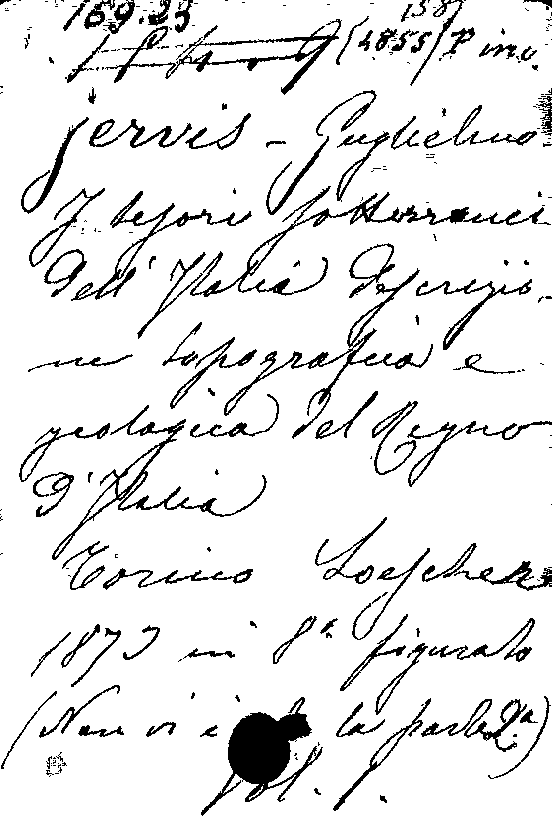 169.23
(4855) P inv.
Jervis - Guglielmo
I tesori sotterranei
dell' Italia descrizio-
ne topografica e
geologica del Regno
d'Italia
Torino Loescher
1873 in 8° figurato
(Non vi è la parte 2ª)
Vol. 1.